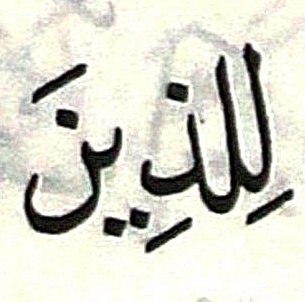 لِلذِينَ